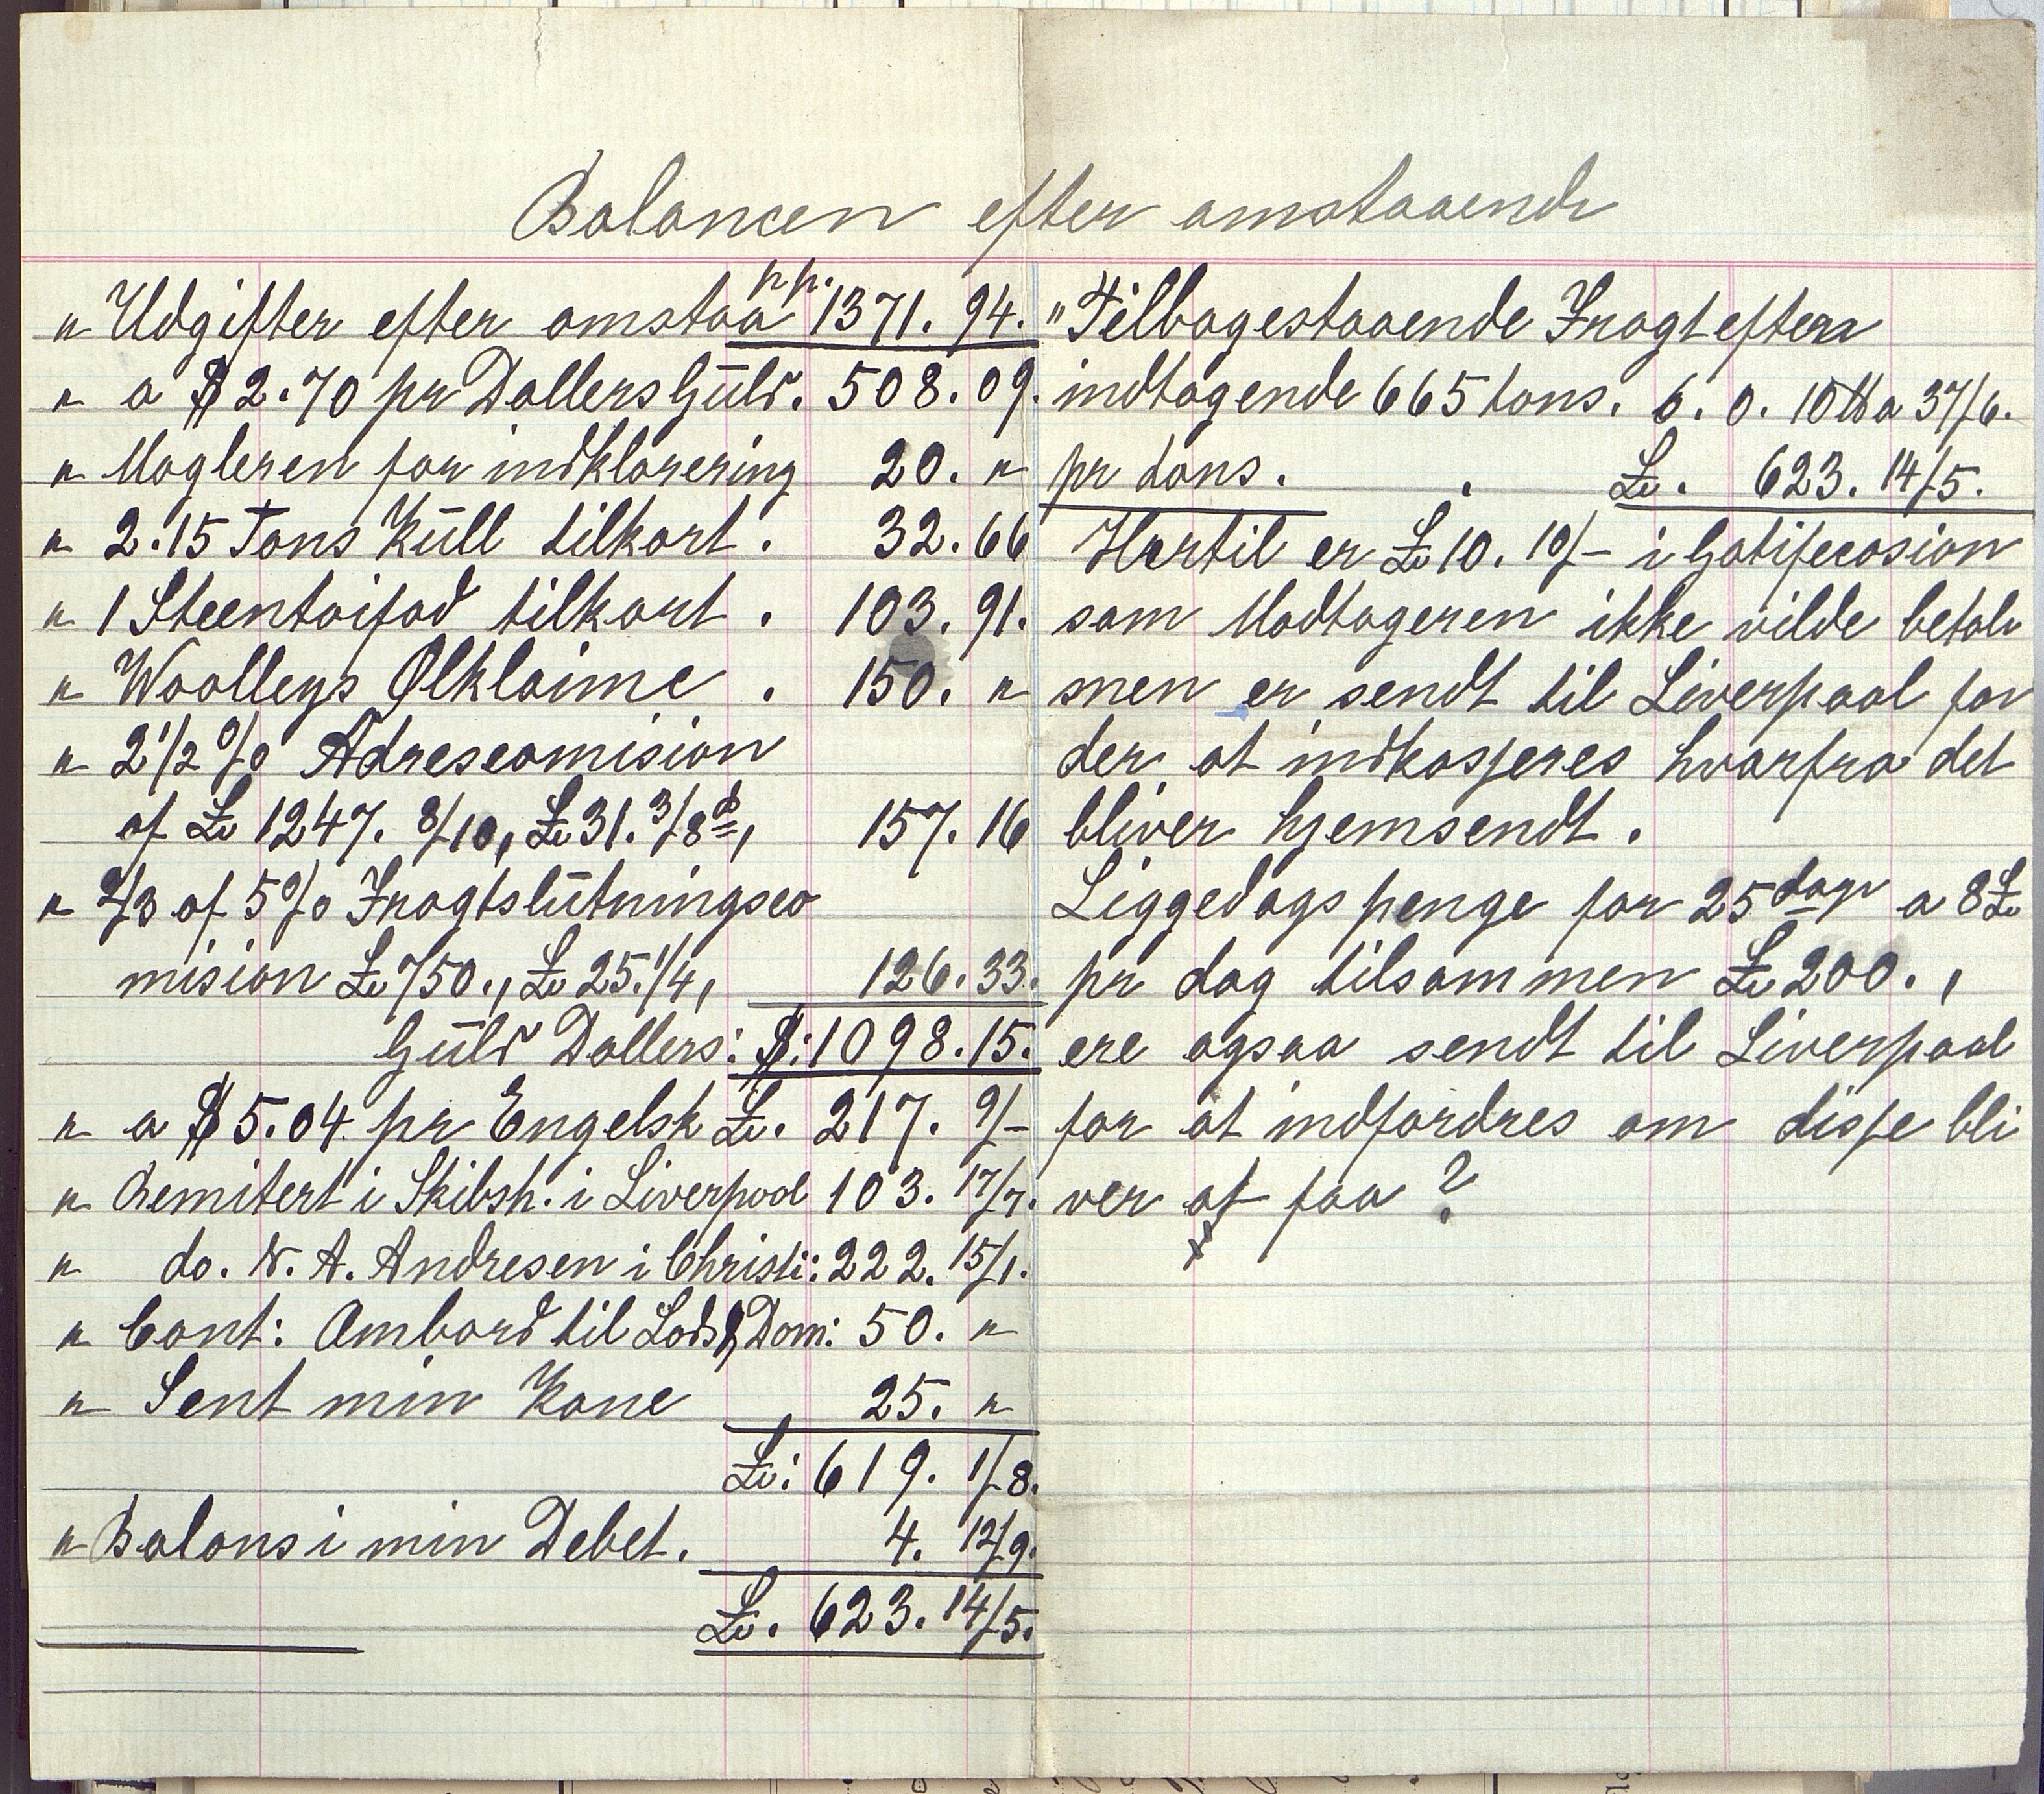 Balancen efter omstaaende
" Udgifter efter omstaa pp. 1371. 94.
" a $ 2.70 pr Dollers Güld. 508. 09.
" Mogleren for indklarering 20. "
" 2.15 Tons Küll tilkort. 32. 66
" 1 Steentoifad tilkort. 103. 91.
" Woolleys Olklaime. 150. "
" 2 1/2 % Adresecomision
af £ 1247. 8/10, £ 31. 3/8 d, 157. 16
" 2/3 af 5 % Fragtslütningsco
mision £ 750., £ 25. 1/4, 126. 33.
Güld Dollers: $: 1098. 15.
" a $ 5.04. pr Engelsk £. 217. 9/-
" Remitert i Skibsh. i Liverpool 103. 17/7.
" do. N. A. Andresen i Christi: 222. 15/1.
" Cont: Ombord til Lods, Dom: 50. "
" Sent min Kone 25. "
£: 619. 1/8.
" Balans i min Debet. 4. 12/9.
£. 623. 14/5.
" Tilbagestaaende Fragt efter
indtagende 665 tons. 6. 0. 10 ℔ a 37/6.
pr tons. . £. 623. 14/5.
Hertil er £ 10. 10/- i Gatifecasion
som Modtageren ikke vilde betale
men er sendt til Liverpool for
der at indkasseres hvorfra det
bliver hjemsendt.
Liggedagspenge for 25 dage a 8 £
pr dag tilsammen £ 200.,
ere ogsaa sendt til Liverpool
for at indfordres om disse bli
ver at faa ?